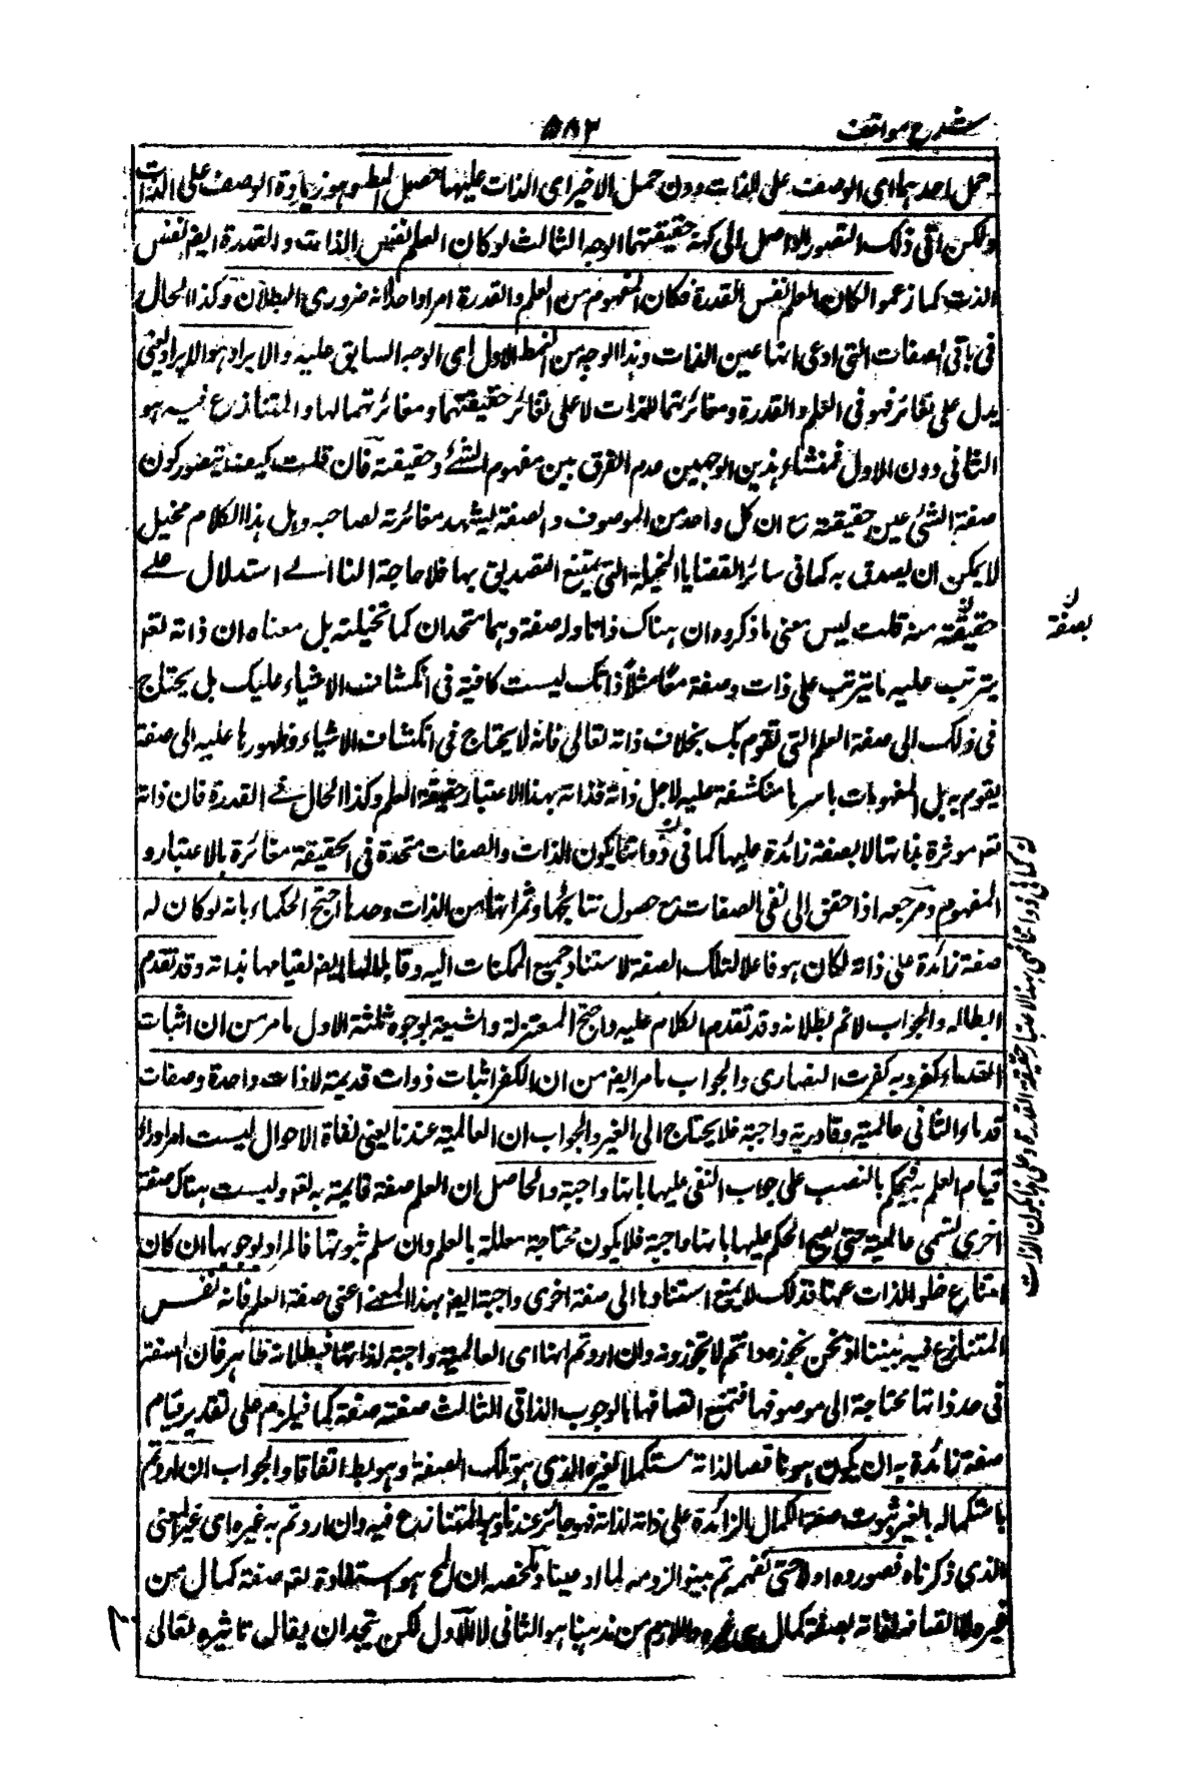 شرح مواقف
۵۸۳
حمل احدهما اى الوصف على الذات دون حمل الاخر اى الذات عليها حصل المطلوب وهو زيادة الوصف على الذات
ولكن انى ذلك التصور الواصل الى كنه حقيقتهما الوجه الثالث لو كان العلم نفس الذات والقدرة ايضا نفس
الذات كما زعموا لكان العلم نفس القدرة فكان المفهوم من العلم والقدرة امرا واحدا وانه ضرورى البطلان وكذا الحال
فى باقى الصفات التى ادعى انها عين الذات وهذا الوجه من النمط الاول اى الوجه السابق عليه والايراد هو الايراد يعنى
يدل على تغائر مفهومى العلم والقدرة ومغائرتهما للذات لا على تغائر حقيقتهما ومغائرتهما لها والمتنازع فيه هو
الثانى دون الاول فمنشاء هذين الوجهين عدم الفرق بين مفهوم الشئ وحقيقته فان قلت كيف يتصور كون
صفة الشئ عين حقيقته مع ان كل واحد من الموصوف والصفة يشهد مغائرته لصاحبه وهل هذا الا كلام مخيل
لا يمكن ان يصدق به كما فى سائر القضايا المخيلة التى يمتنع التصديق بها فلا حاجة لنا الى استدلال على
حقيقته منه قلت ليس معنى ما ذكروه ان هناك ذاتا وله صفة وهما متحدان كما تخيلته بل معناه ان ذاته تعه
يترتب عليه ما يترتب على ذات وصفة معا مثلا ذاتك ليست كافية فى انكشاف الاشياء عليك بل يحتاج
فى ذلك الى صفة العلم التى تقوم بك بخلاف ذاته تعالى فانه لا يحتاج فى انكشاف الاشياء وظهورها عليه الى صفة
يقوم به بل المفهومات باسرها منكشفة عليه لاجل ذاته فذاته بهذا الاعتبار حقيقة العلم وكذا الحال فى القدرة فان ذاته
تعه موثرة بذاتها لا بصفة زائدة عليها كما فى ذواتنا يكون الذات والصفات متحدة فى الحقيقة مغائرة بالاعتبار و
المفهوم ومرجعه اذا حقق الى نفى الصفات مع حصول نتائجها وثمراتها من الذات وحدها احتج الحكماء بانه لو كان له
صفة زائدة على ذاته لكان هو فاعلا لتلك الصفة لاستناد جميع الممكنات اليه وقابلا لها ايضا لقيامها بذاته وقد تقدم
ابطاله والجواب لا نم بطلانه وقد تقدم الكلام عليه واحتج المعتزلة والشيعة بوجوه ثلثة الاول ما مر من ان اثبات
القدماء كفر وبه كفرت النصارى والجواب ما مر ايضا من ان الكفر اثبات ذوات قديمة لا ذات واحدة وصفات
قدماء الثانى عالميته وقادريته واجبة فلا يحتاج الى الغير والجواب ان العالمية عندنا يعنى نفاة الاحوال ليست امرا وراء
قيام العلم به فيحكم بالنصب على جواب النفى عليها بانها واجبة والحاصل ان العلم صفة قائمة به تعه وليست هناك صفة
اخرى تسمى عالمية حتى يصح الحكم عليها بانها واجبة فلا يكون محتاجة معللة بالعلم وان سلم ثبوتها فالمراد بوجوبها ان كان
امتناع خلو الذات عنها فذلك لا يمنع استنادها الى صفة اخرى واجبة ايضا بهذا المعنى اعنى صفة العلم فانه نفس
المتنازع فيه بيننا اذ نحن نجوزه وانتم لا تجوزونه وان اردتم انها اى العالمية واجبة لذاتها فبطلانه ظاهر فان الصفة
فى حد ذاتها محتاجة الى موصوفها فيمتنع اتصافها بالوجوب الذاتى الثالث صفته صفة كما فيلزم على تقدير قيام
صفة زائدة به ان يكون هو ناقصا لذاته مستكملا لغيره الذى هو تلك الصفة وهو بط اتفاقا والجواب ان اردتم
باستكماله بالغير ثبوت صفة الكمال الزائدة على ذاته لذاته فهو جائز عندنا وهو المتنازع فيه وان اردتم به غيره اى غير المعنى
الذى ذكرناه فصوروه اولا حتى نفهمه ثم بينوا لزومه لما ادعينا وملخصه ان المح هو استفادة تعه صفة كمال من
غيره لا اتصافه لذاته بصفة كمال واللازم من مذهبنا هو الثانى لا الاول لكن يتجه ان يقال تاثيره تعالى
ن
بصفة
ن كما فى ذواتنا فهى بهذا الاعتبار حقيقة القدرة وعلى هذا يكون الذات